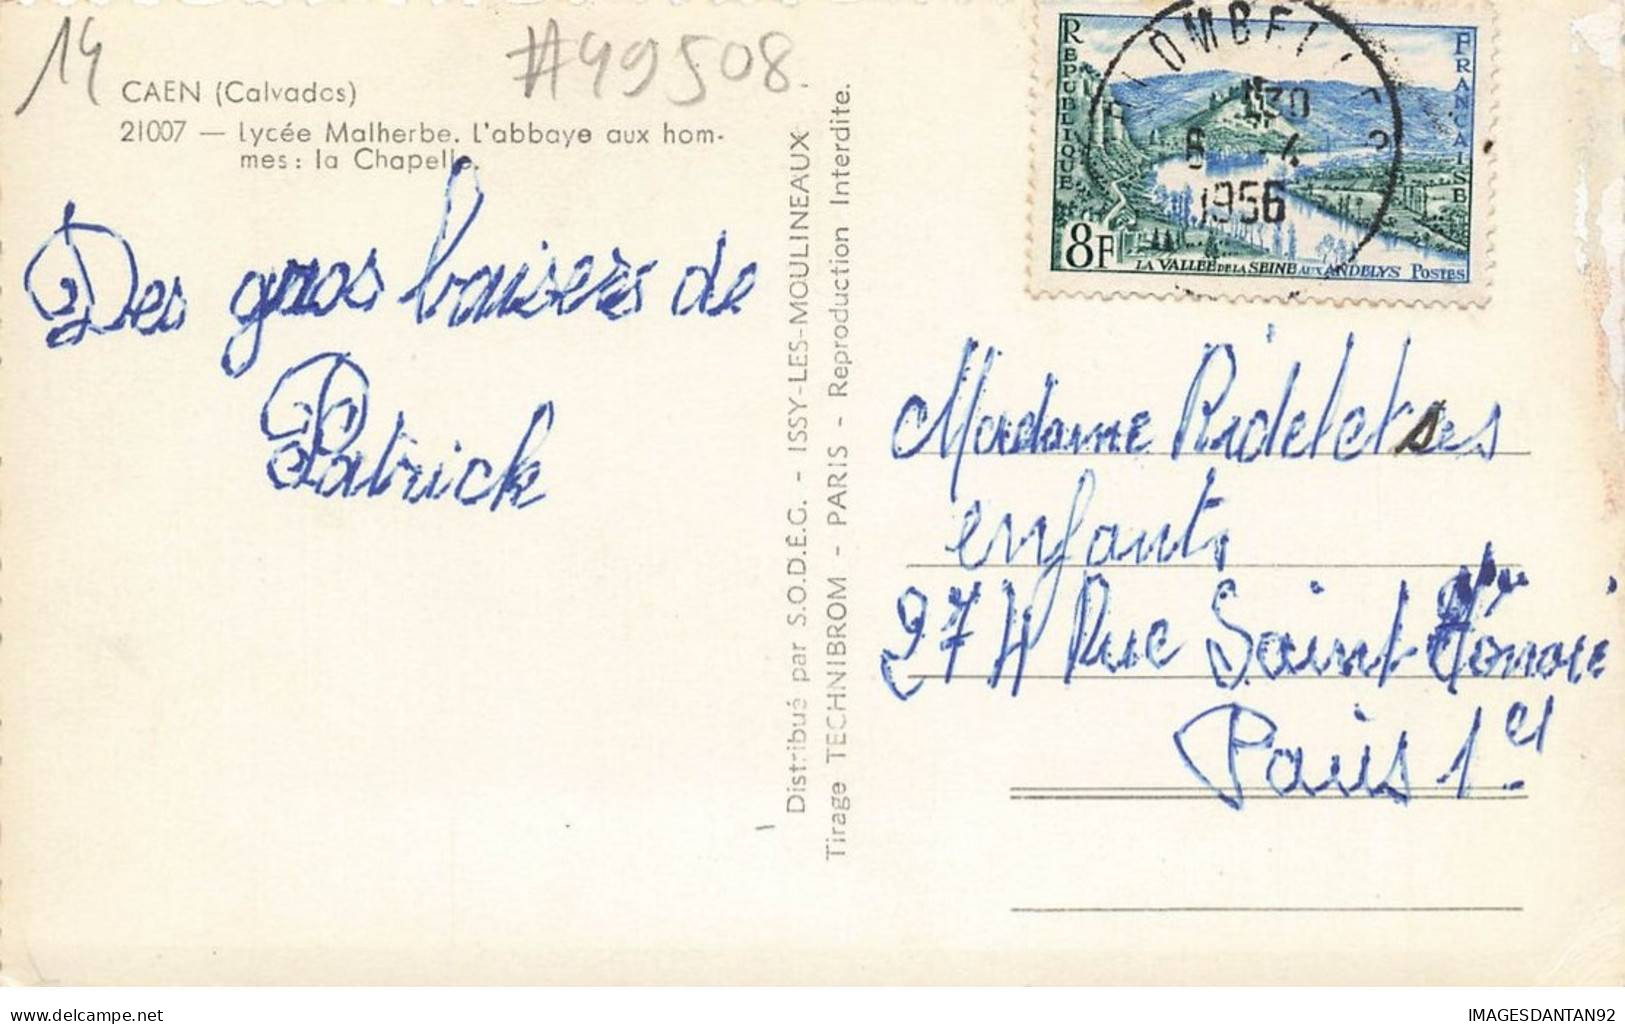 14
#49508
CAEN (Calvados)
21007 — Lycée Malherbe. L'abbaye aux hom-
mes : la Chapelle.
Des gros baisers de
Patrick
Distribué par S.O.D.E.G. - ISSY-LES-MOULINEAUX
Tirage TECHNIBROM - PARIS - Reproduction Interdite.
REPUBLIQUE
FRANCAISE
8F
LA VALLÉE DE LA SEINE AUX ANDELYS POSTES
1956
Madame Ridelet ses
enfants
274 Rue Saint-Honoré
Paris 1er
Delcampe.net
IMAGESDANTAN92